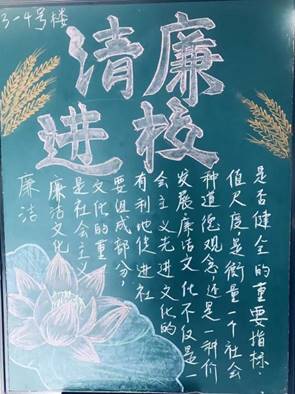 3-4号楼
清廉
进校
廉洁
廉洁文化
是社会主义
文化的重
要组成部分,
有利地促进社
会主义先进文化的
发展廉洁文化不仅是一
种道德观念,还是一种价
值尺度,是衡量一个社会
是否健全的重要指标.